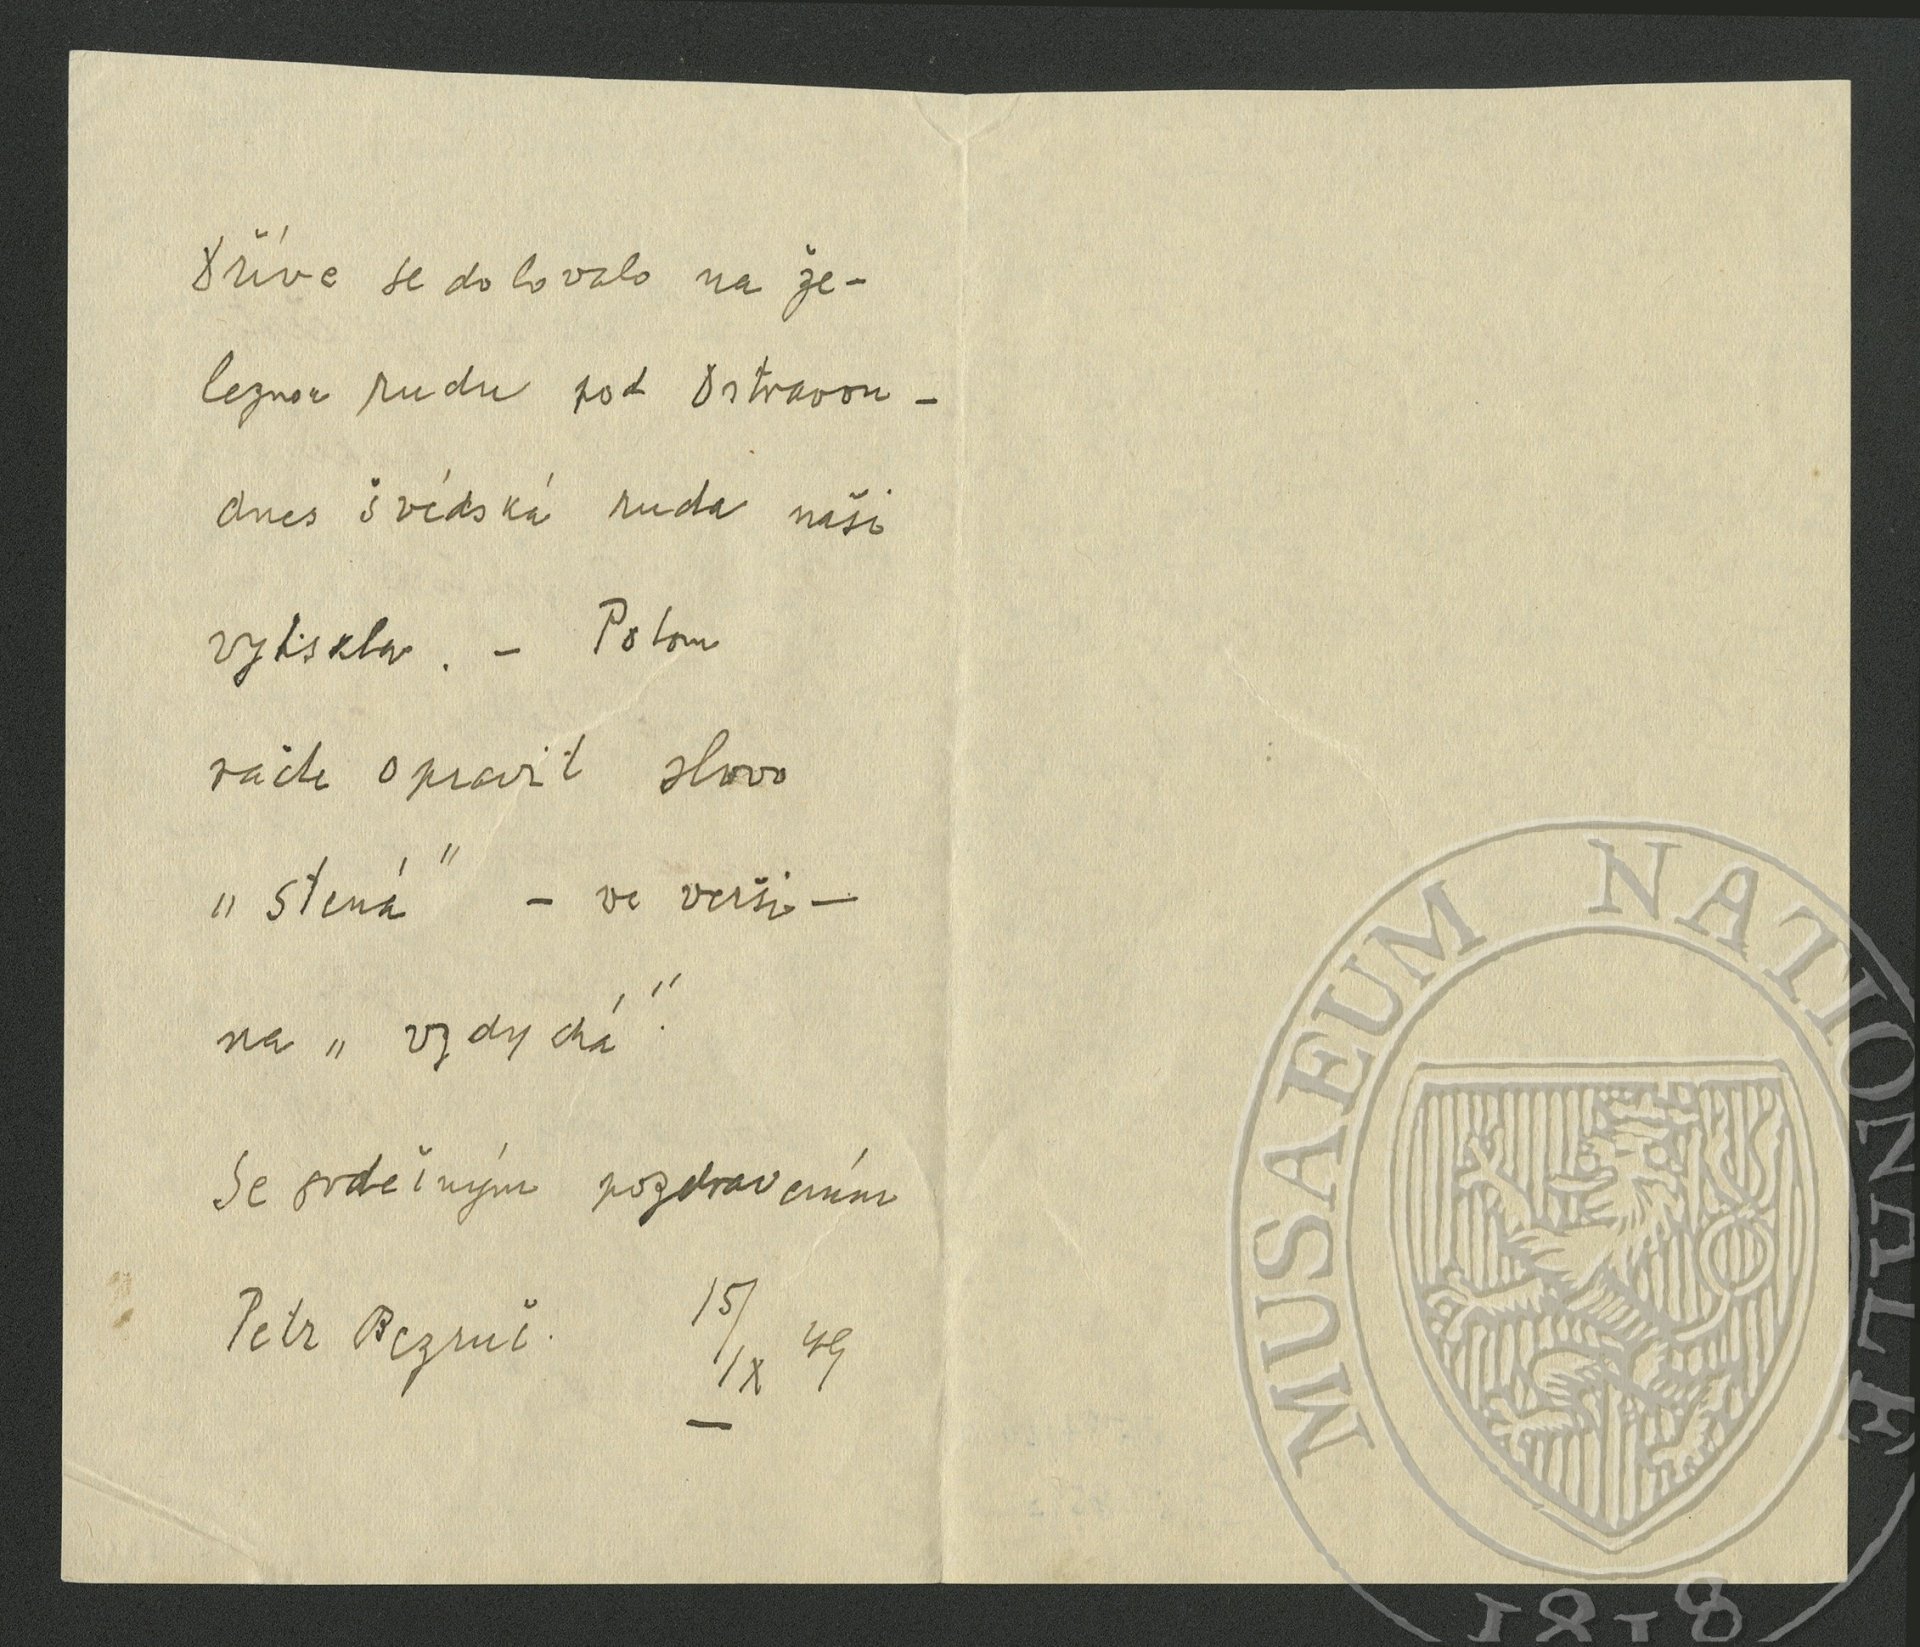 Dříve se dolovalo na že-
leznou rudu pod Ostravou -
dnes švédská ruda naši
vytiskla. - Potom
račte opravit slovo
„stená" - ve verši -
na „vzdychá".
Se srdečným pozdravením
Petr Bezruč. 15/IX 49
MUSAEUM NATIONALE
1818